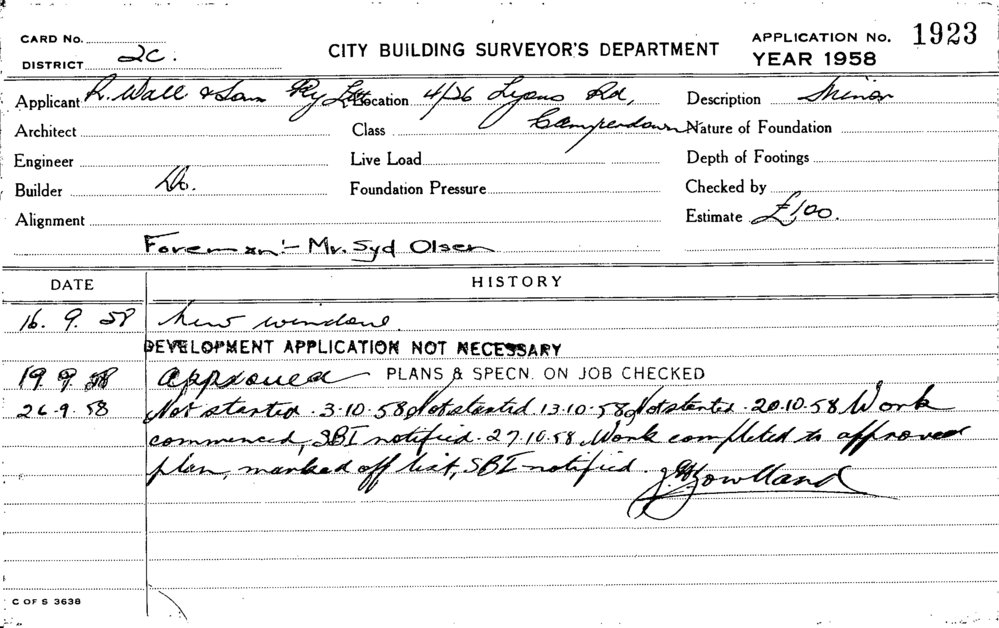 CARD No.
DISTRICT 2C.
CITY BUILDING SURVEYOR'S DEPARTMENT
APPLICATION No. 1923
YEAR 1958
Applicant R. Wall & Son Pty Ltd Location 4/26 Lyons Rd, Description Minor
Architect Class Camperdown Nature of Foundation
Engineer Live Load Depth of Footings
Builder Do. Foundation Pressure Checked by
Alignment Estimate £100.
Foreman:- Mr. Syd Olsen
DATE HISTORY
16. 9. 58 New window.
DEVELOPMENT APPLICATION NOT NECESSARY
19. 9. 58 Approved PLANS & SPECN. ON JOB CHECKED
26-9. 58 Not started. 3-10.58 Not started 13.10.58 Not started. 20.10.58 Work
commenced, SBI notified. 27.10.58. Work completed to approved
plan, marked off list, SBI notified.
C OF S 3638